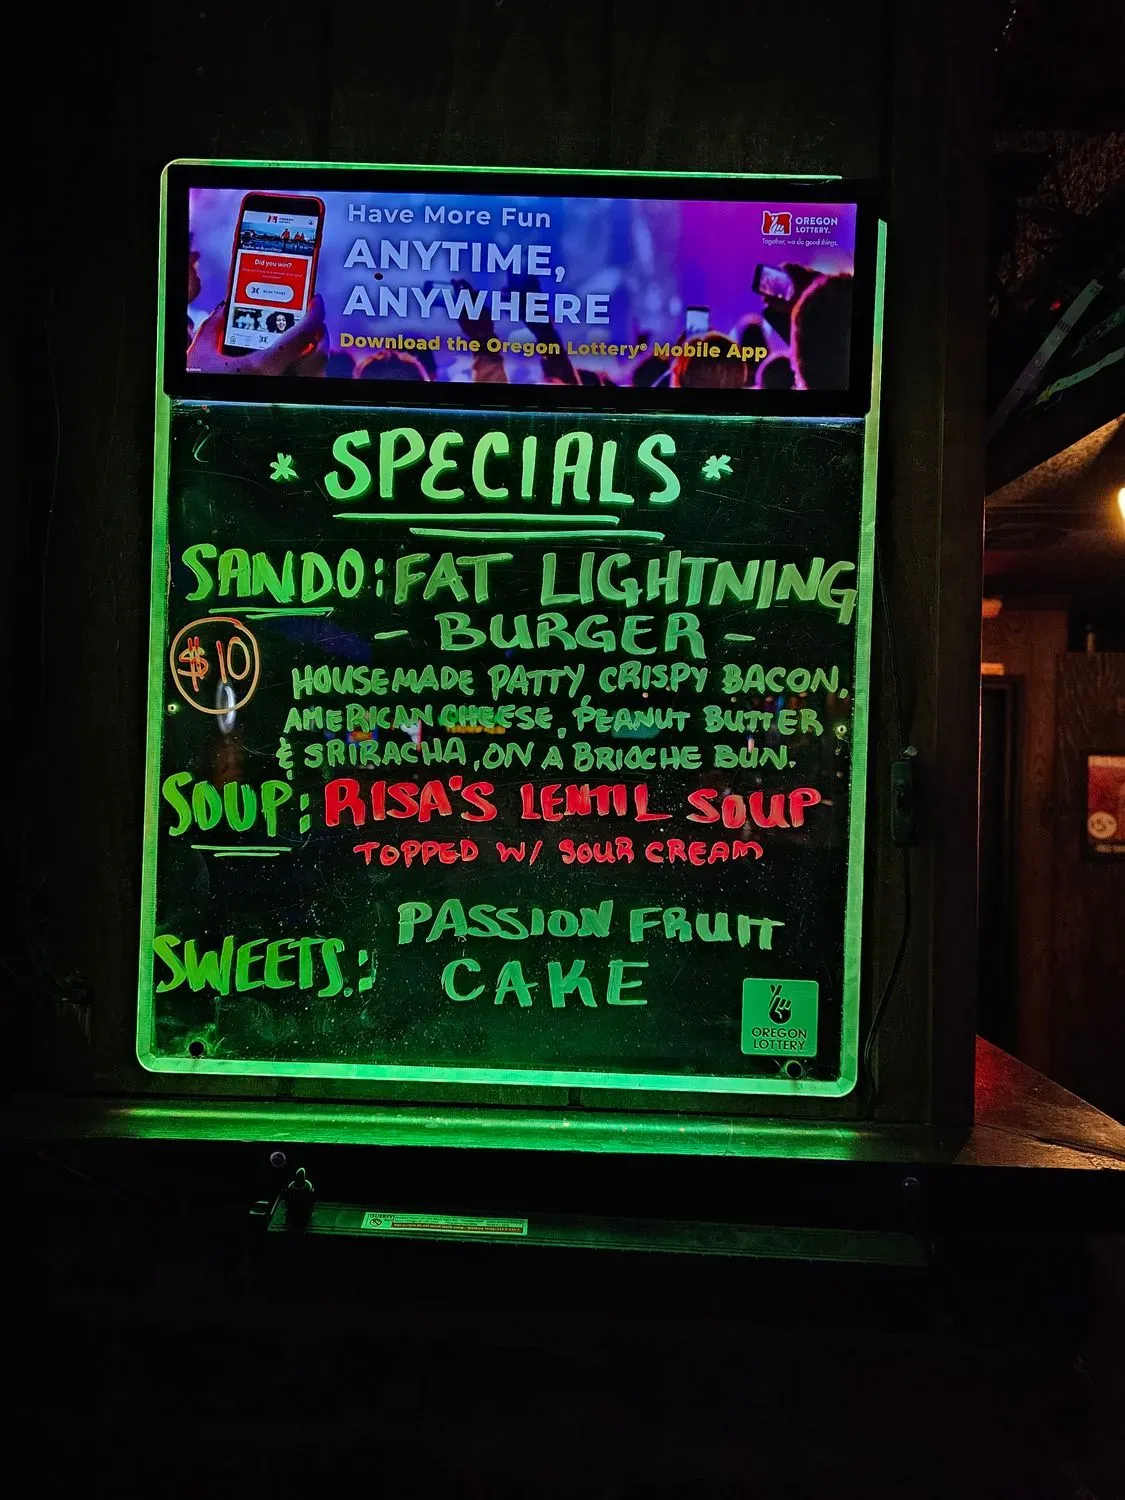 Have More Fun
ANYTIME,
ANYWHERE
Download the Oregon Lottery® Mobile App
OREGON
LOTTERY
Together, we do good things.
Did you win?
SCAN TICKET
* SPECIALS *
SANDO: FAT LIGHTNING
- BURGER -
$10
HOUSEMADE PATTY, CRISPY BACON,
AMERICAN CHEESE, PEANUT BUTTER
& SRIRACHA, ON A BRIOCHE BUN.
SOUP: RISA'S LENTIL SOUP
TOPPED W/ SOUR CREAM
PASSION FRUIT
SWEETS: CAKE
OREGON
LOTTERY